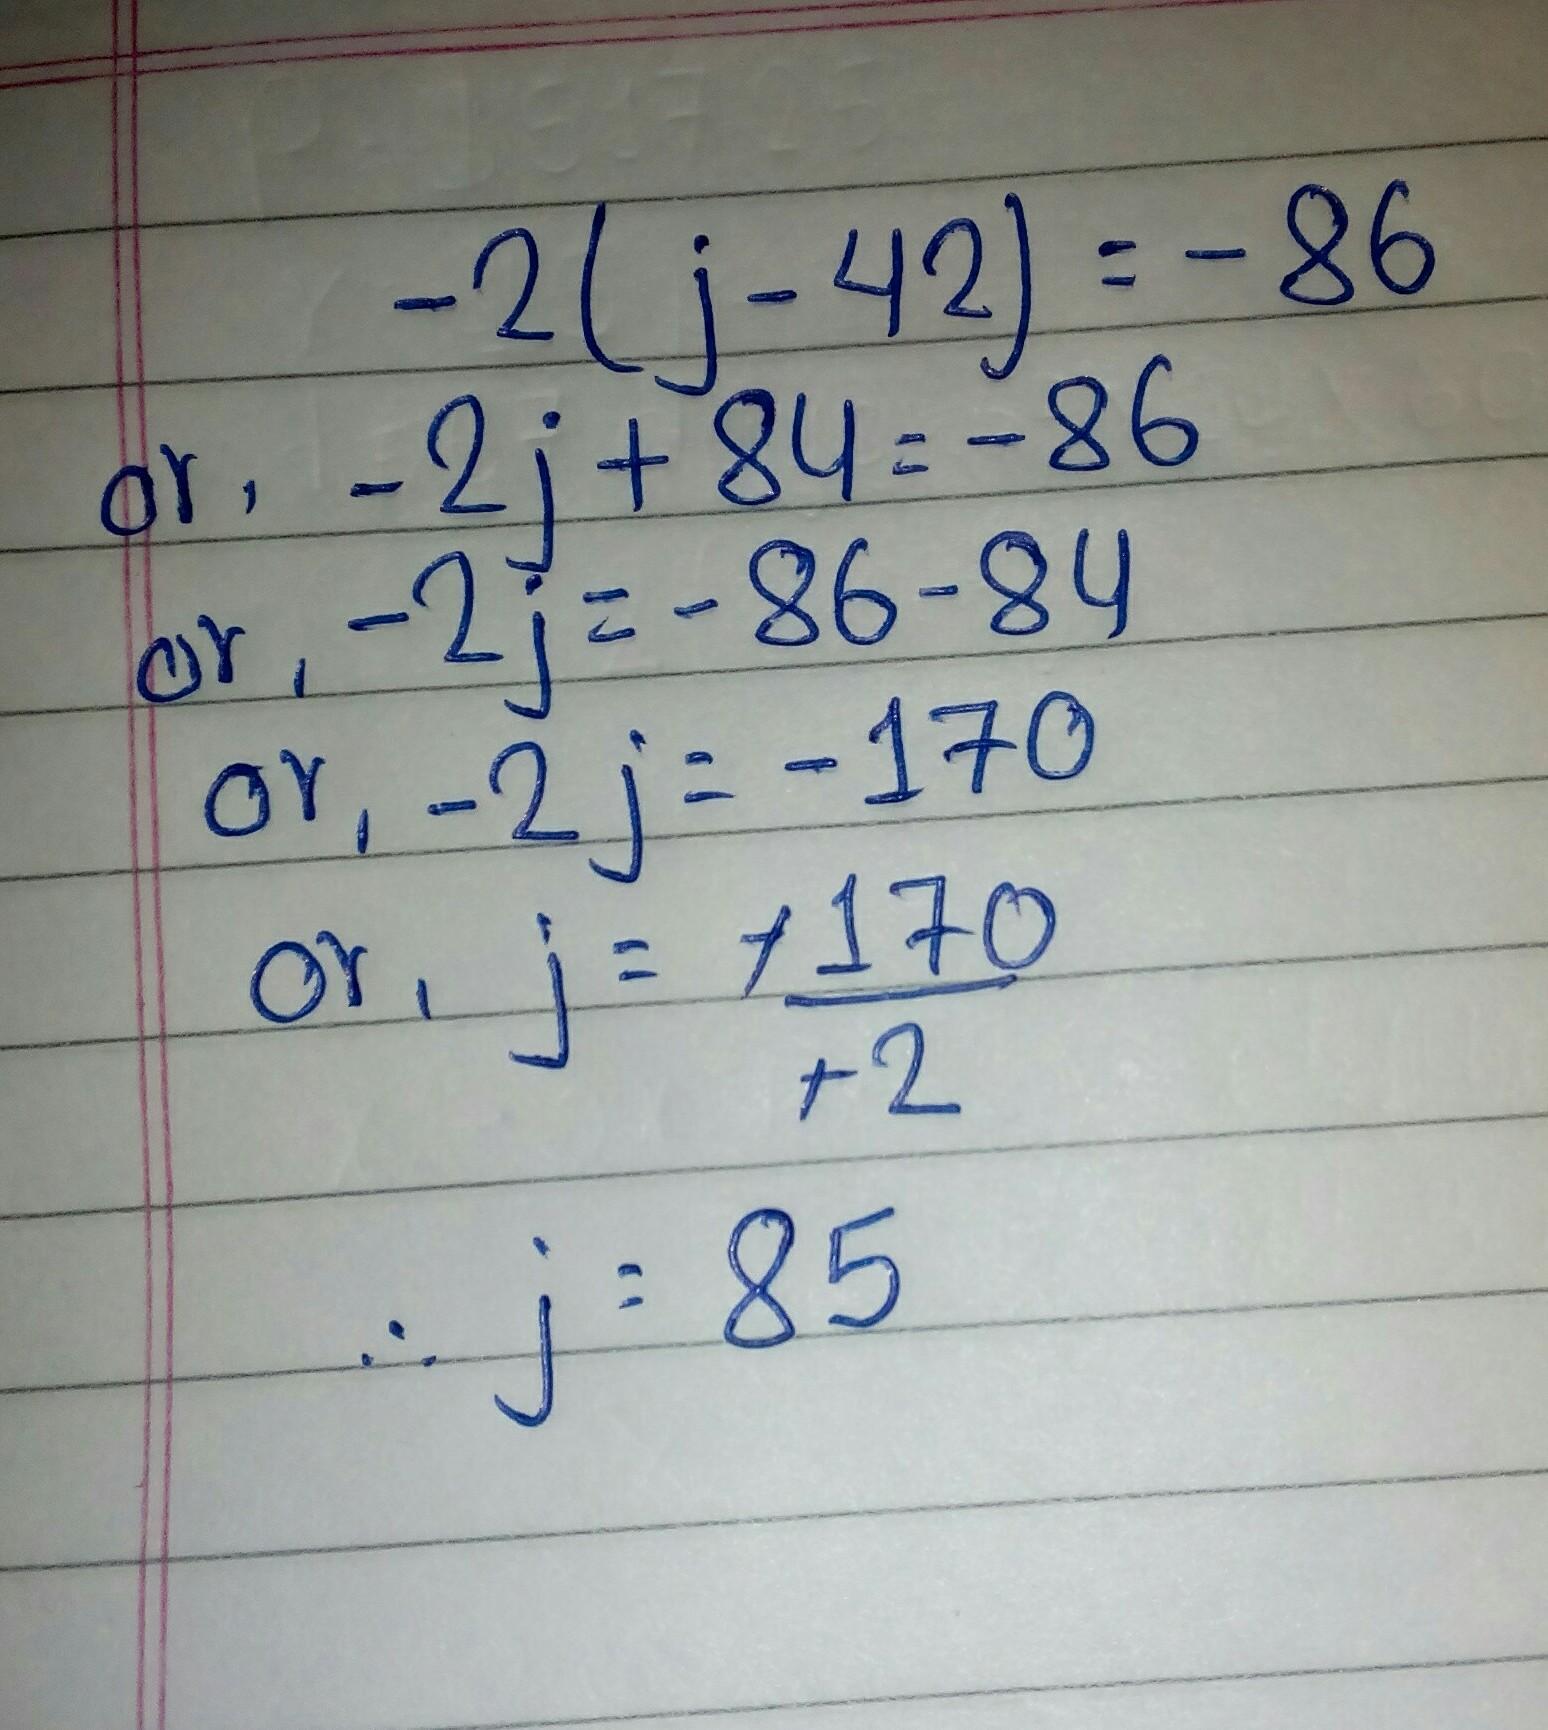 -2(j-42) = -86
or, -2j+84=-86
or, -2j=-86-84
or, -2j=-170
or, j= +170
+2
∴ j = 85